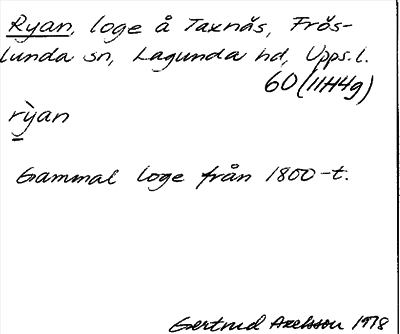 Ryan, loge å Taxnäs, Frös-
lunda sn, Lagunda hd, Upps.l.
60 (11H4g)
rỳan
Gammal loge från 1800-t.
Gertrud Axelsson 1978